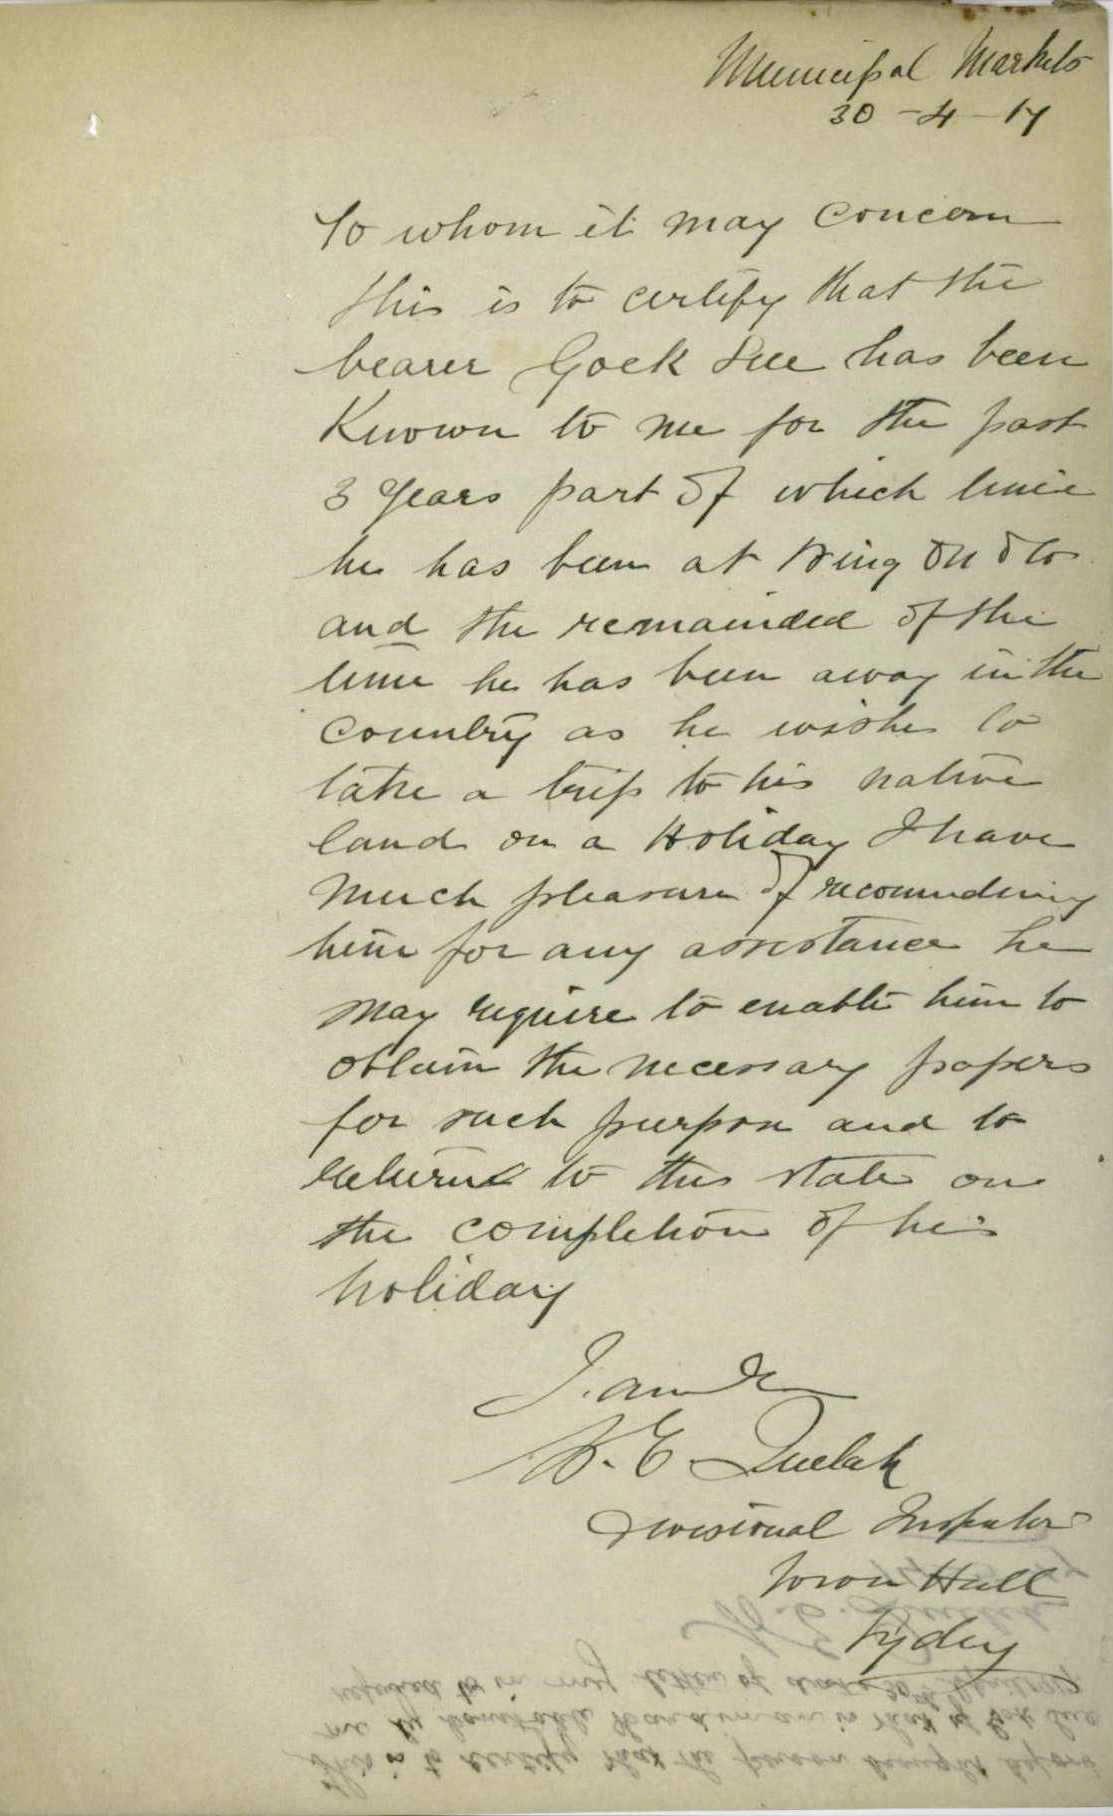 Municipal Markets
30-4-17
To whom it may concern
this is to certify that the
bearer Gock Sue has been
Known to me for the past
3 years part of which time
he has been at Wing On & Co
and the remainded of the
time he has been away in the
country as he wishes to
take a trip to his native
land on a Holiday I have
much pleasure of recommending
him for any assistance he
may require to enable him to
obtain the necessary papers
for such purpose and to
return to this state on
the completion of his
holiday
I. am
W. E.
Divisional Inspector
Town Hall
Sydney